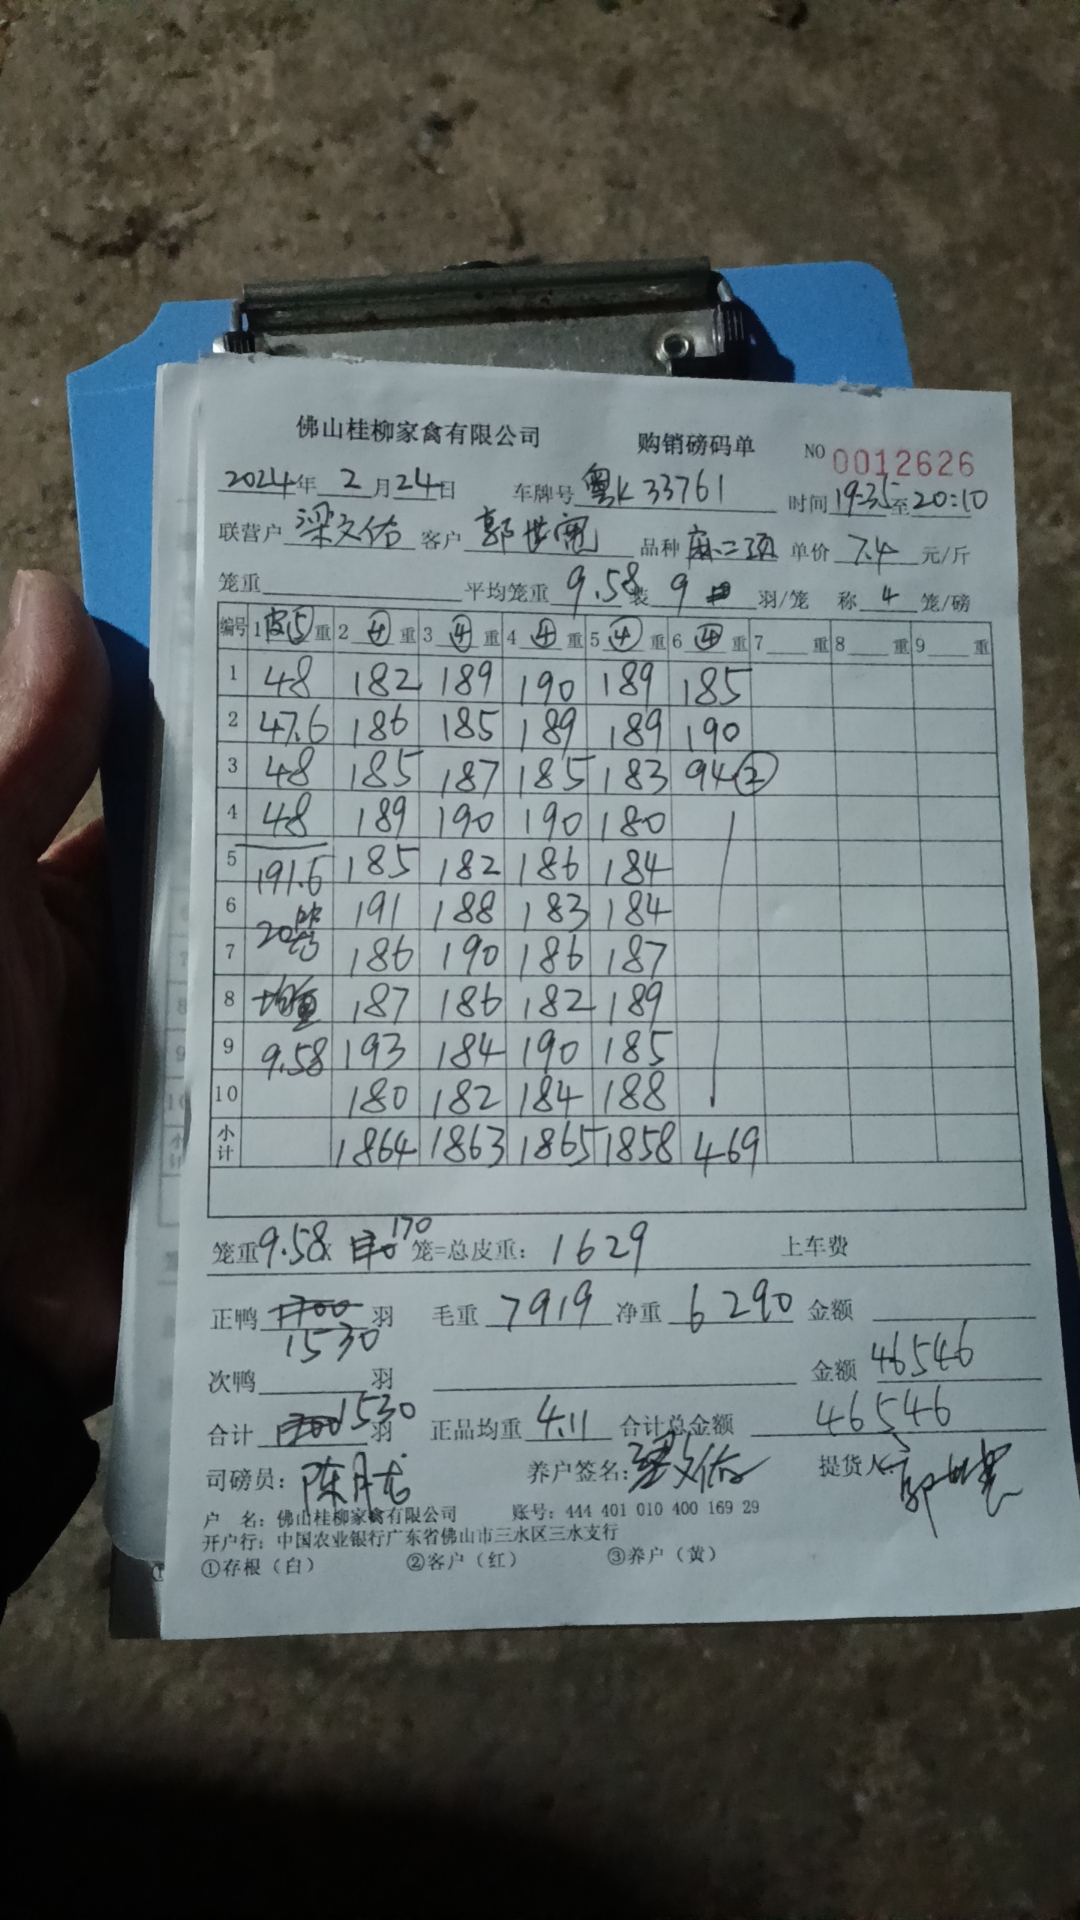 佛山桂柳家禽有限公司 购销磅码单 NO 0012626
2024年 2月24日 车牌号 粤K 33761 时间 19:35至20:10
联营户 梁文佑 客户 郭世 品种 麻二项 单价 7.4 元/斤
笼重 平均笼重 9.58 装 9 羽/笼 称 4 笼/磅
编号 1 皮⑤ 重 2 ④ 重 3 ④ 重 4 ④ 重 5 ④ 重 6 ④ 重 7 重 8 重 9 重
1 48 182 189 190 189 185
2 47.6 186 185 189 189 190
3 48 185 187 185 183 94②
4 48 189 190 190 180
5 191.6 185 182 186 184
6 20笼 191 188 183 184
7 186 190 186 187
8 均重 187 186 182 189
9 9.58 193 184 190 185
10 180 182 184 188
小计 1864 1863 1865 1858 469
笼重9.58x 170 笼=总皮重: 1629 上车费
正鸭 1700 羽 毛重 7919 净重 6290 金额
1530
次鸭 羽 金额 46546
合计 1700 1530 羽 正品均重 4.11 合计总金额 46546
司磅员: 陈月 养户签名: 梁文佑 提货人: 郭世
户 名: 佛山桂柳家禽有限公司 账号: 444 401 010 400 169 29
开户行: 中国农业银行广东省佛山市三水区三水支行
①存根（白） ②客户（红） ③养户（黄）